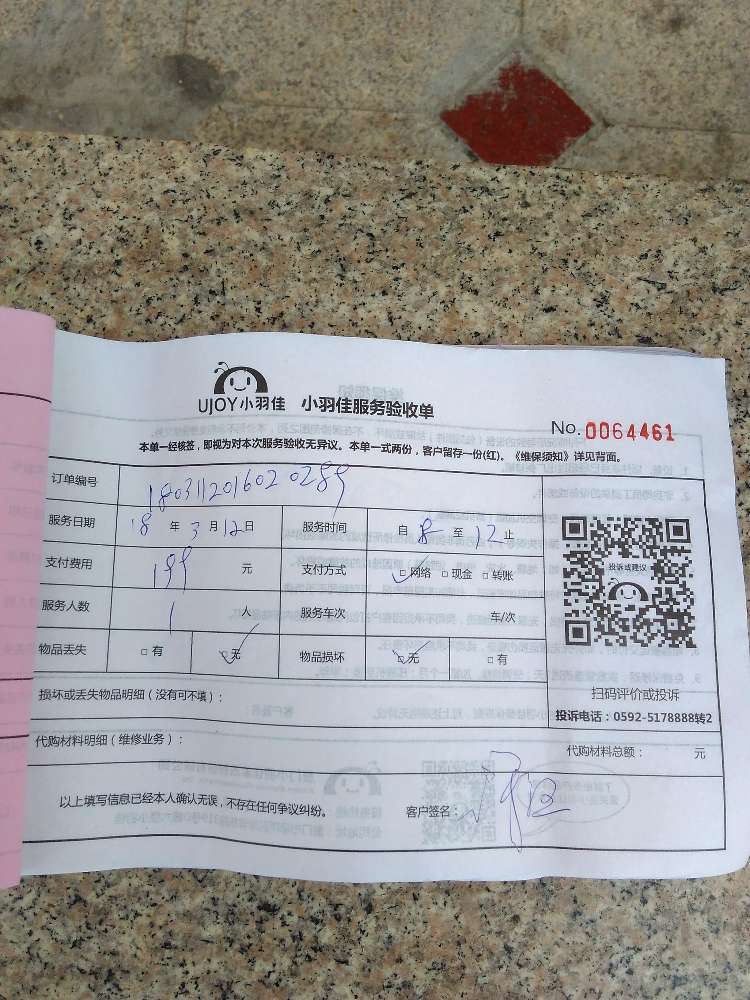 UJOY小羽佳 小羽佳服务验收单
No. 0064461
本单一经核签，即视为对本次服务验收无异议。本单一式两份，客户留存一份(红)。《维保须知》详见背面。
订单编号 180311201602028９
服务日期 18 年 3 月 12 日 服务时间 自 8 至 12 止
支付费用 199 元 支付方式 ☑网络 □现金 □转账
服务人数 1 人 服务车次 车/次
物品丢失 □有 ☑无 物品损坏 ☑无 □有
投诉或建议
扫码评价或投诉
投诉电话：0592-5178888转2
损坏或丢失物品明细（没有可不填）：
代购材料明细（维修业务）： 代购材料总额： 元
以上填写信息已经本人确认无误，不存在任何争议纠纷。 客户签名：